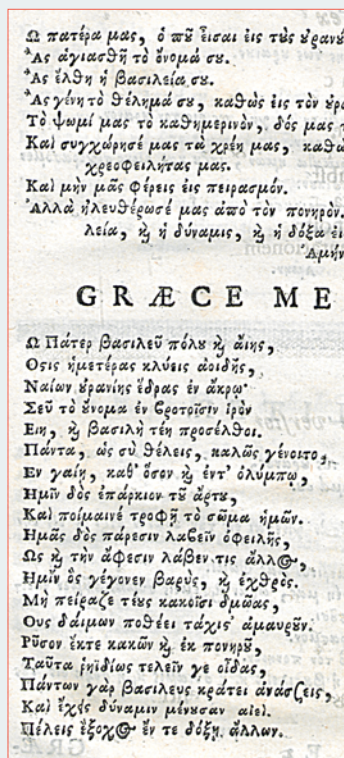 Ω πατέρα μας, ὁ πȣ̃ εἶσαι εἰς τὰς ȣ̓ρανȣ
Ἂς ἁγιασθῇ τὸ ὄνομά σȣ.
Ἂς ἔλθη ἡ βασιλεία σȣ.
Ἂς γένῃ τὸ θέλημά σȣ, καθὼς εἰς τὸν ȣ̓ρ
Τὸ ψωμί μας τὸ καθημερινὸν, δός μας
Καὶ συγχώρησέ μας τὰ χρέη μας, καθὼ
χρεοφειλήτας μας.
Καὶ μὴν μᾶς φέρεις εἰς πειρασμόν.
Ἀλλὰ ἠλευθέρωσέ μας ἀπὸ τὸν πονηρὸν.
λεία, ϗ ἡ δύναμις, ϗ ἡ δόξα εἰ
Ἀμήν
GRÆCE ME
Ω Πάτερ βασιλεῦ πόλυ ϗ ἄιης,
Οσις ἡμετέρας κλύεις ἀοιδῆς,
Ναίων ȣ̓ρανίης ἕδρας ἐν ἄκρῳ·
Σεῦ τὸ ȣ̓́νομα ἐν βροτοῖσιν ἱρὸν
Ειη, ϗ βασιλὴ τέη προσέλθοι.
Πάντα, ὡς σὺ θέλεις, καλῶς γένοιτο,
Εν γαίῃ, καθ' ὅσον ϗ ἐντ' ὀλύμπῳ,
Ημῖν δὸς ἐπάρκιον τȣ̃ ἄρτȣ,
Καὶ ποίμαινέ τροφῇ τὸ σῶμα ἡμῶν.
Ημᾶς δὸς πάρεσιν λαβεῖν ὀφειλῆς,
Ως ϗ τὴν ἄφεσιν λάβεν τις ἄλλος,
Ημῖν ὃς γέγονεν βαρὺς, ϗ ἐχθρὸς.
Μὴ πείραζε τέȣς κακοῖσι δμῶας,
Ους δαίμων ποθέει τάχις' ἀμαυρȣ̃ν.
Ρῦσον ἔκτε κακῶν ϗ ἐκ πονηρȣ̃,
Ταῦτα ῥηϊδίως τελεῖν γε οἶδας,
Πάντων γὰρ βασιλευς κράτει ἀνάσσεις,
Καὶ ἔχεις δύναμιν μένȣσαν αἰεί.
Πέλεις ἔξοχος ἔν τε δόξῃ ἄλλων.